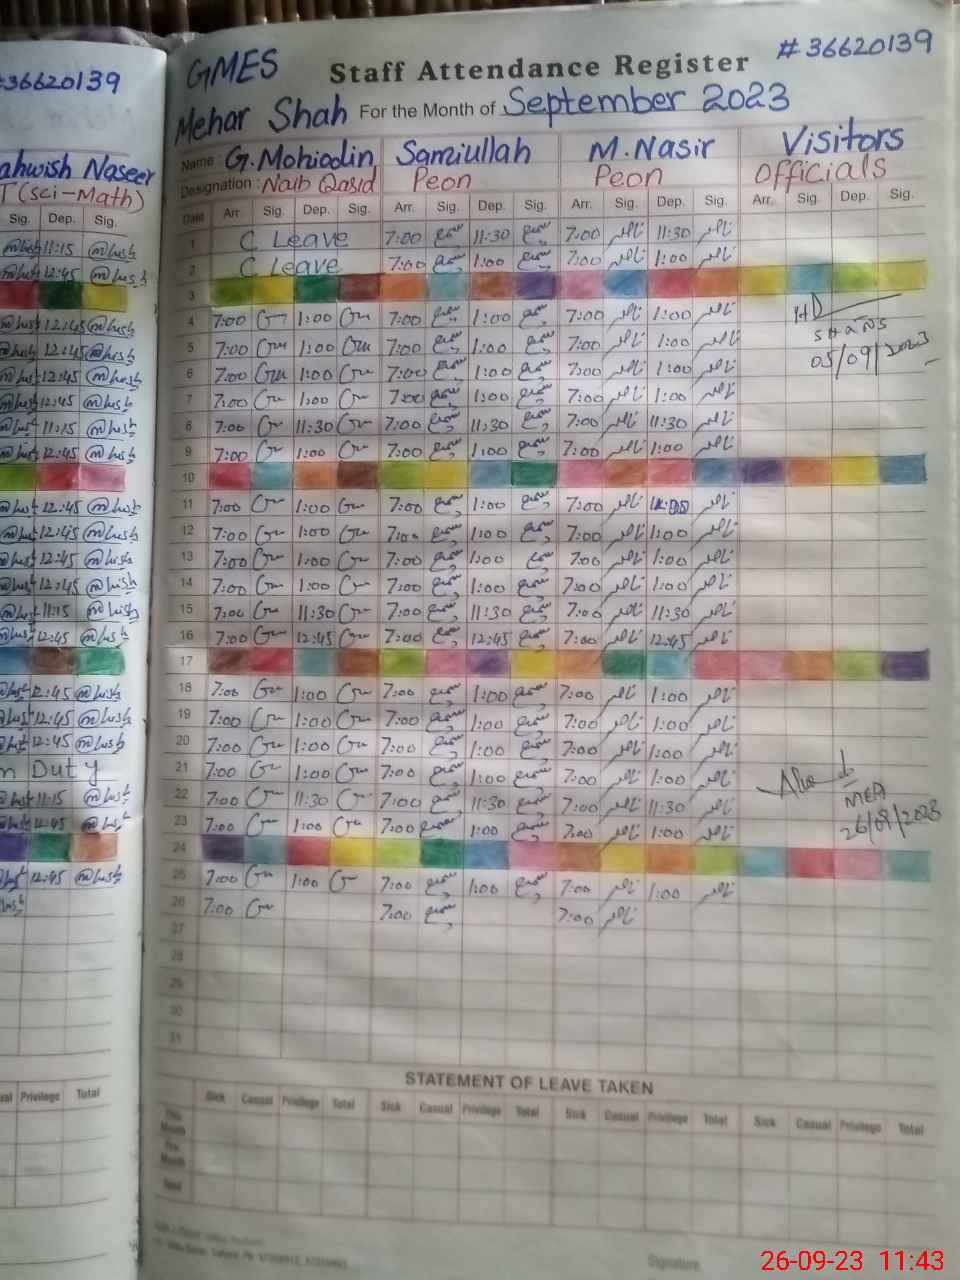 #36620139
GMES Staff Attendance Register #36620139
Mehar Shah For the Month of September 2023
ahwish Naseer Name : G.Mohiodin Samiullah M.Nasir Visitors
T(sci-Math) Designation : Naib Qasid Peon Peon Officials
Sig. Dep. Sig. Date Arr. Sig. Dep. Sig. Arr. Sig. Dep. Sig. Arr. Sig. Dep. Sig. Arr. Sig. Dep. Sig.
11:15 1 C Leave 7:00 سمیع 11:30 سمیع 7:00 ناصر 11:30 ناصر
12:45 2 C Leave 7:00 سمیع 1:00 سمیع 7:00 ناصر 1:00 ناصر
3
12:45 4 7:00 1:00 7:00 سمیع 1:00 سمیع 7:00 ناصر 1:00 ناصر
12:45 5 7:00 1:00 7:00 سمیع 1:00 سمیع 7:00 ناصر 1:00 ناصر
05/09/2023
12:45 6 7:00 1:00 7:00 سمیع 1:00 سمیع 7:00 ناصر 1:00 ناصر
12:45 7 7:00 1:00 7:00 سمیع 1:00 سمیع 7:00 ناصر 1:00 ناصر
11:15 8 7:00 11:30 7:00 سمیع 11:30 سمیع 7:00 ناصر 11:30 ناصر
12:45 9 7:00 1:00 7:00 سمیع 1:00 سمیع 7:00 ناصر 1:00 ناصر
10
12:45 11 7:00 1:00 7:00 سمیع 1:00 سمیع 7:00 ناصر ناصر
12:45 12 7:00 1:00 7:00 سمیع 1:00 سمیع 7:00 ناصر 1:00 ناصر
12:45 13 7:00 1:00 7:00 سمیع 1:00 سمیع 7:00 ناصر 1:00 ناصر
12:45 14 7:00 1:00 7:00 سمیع 1:00 سمیع 7:00 ناصر 1:00 ناصر
11:15 15 7:00 11:30 7:00 سمیع 11:30 سمیع 7:00 ناصر 11:30 ناصر
12:45 16 7:00 12:45 7:00 سمیع 12:45 سمیع 7:00 ناصر 12:45 ناصر
17
12:45 18 7:00 1:00 7:00 سمیع 1:00 سمیع 7:00 ناصر 1:00 ناصر
12:45 19 7:00 1:00 7:00 سمیع 1:00 سمیع 7:00 ناصر 1:00 ناصر
12:45 20 7:00 1:00 7:00 سمیع 1:00 سمیع 7:00 ناصر 1:00 ناصر
n Duty 21 7:00 1:00 7:00 سمیع 1:00 سمیع 7:00 ناصر 1:00 ناصر
11:15 22 7:00 11:30 7:00 سمیع 11:30 سمیع 7:00 ناصر 11:30 ناصر MEA
12:45 23 7:00 1:00 7:00 سمیع 1:00 سمیع 7:00 ناصر 1:00 ناصر 26/09/2023
24
12:45 25 7:00 1:00 7:00 سمیع 1:00 سمیع 7:00 ناصر 1:00 ناصر
26 7:00 7:00 سمیع 7:00 ناصر
27
28
29
30
31
STATEMENT OF LEAVE TAKEN
Privilege Total Sick Casual Privilege Total Sick Casual Privilege Total Sick Casual Privilege Total Sick Casual Privilege Total
This Month
Pre. Month
Total
Signature
26-09-23 11:43